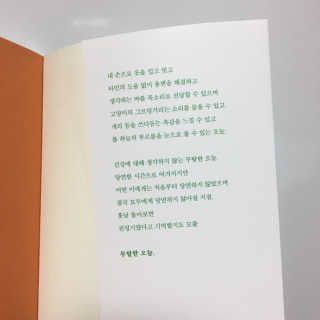 내 손으로 옷을 입고 벗고
타인의 도움 없이 용변을 해결하고
생각하는 바를 목소리로 전달할 수 있으며
고양이의 그르렁거리는 소리를 들을 수 있고
개의 등을 쓰다듬는 촉감을 느낄 수 있고
봄 하늘의 푸르름을 눈으로 볼 수 있는 오늘.
건강에 대해 생각하지 않는 무탈한 오늘.
당연한 시간으로 여겨지지만
어떤 이에게는 처음부터 당연하지 않았으며
결국 모두에게 당연하지 않아질 시절.
훗날 돌아보면
전성기였다고 기억할지도 모를
무탈한 오늘.